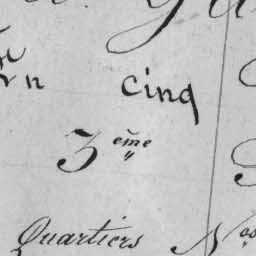 cinq
3ème
Quartiers Nos